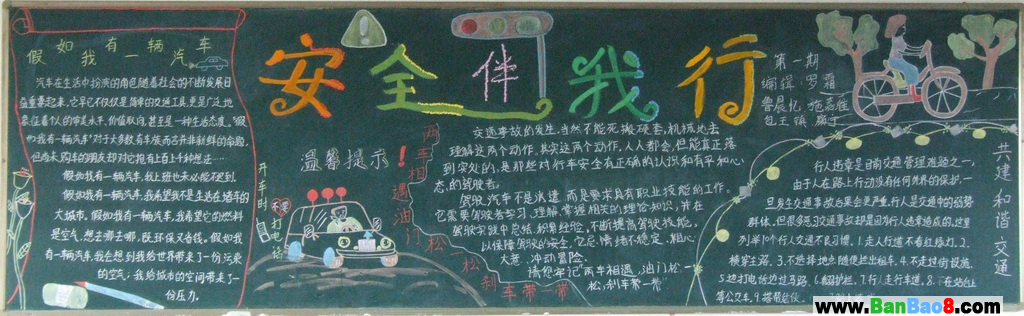 假如有一辆汽车
我
汽车在生活中扮演的角色随着社会的不断发展日
益重要起来,它早已不仅仅是简单的交通工具,更是广泛地
象征着个人的审美水平、价值取向,甚至是一种生活态度。“假
如我有一辆汽车”对于大多数有车族而言并非新鲜的命题,
但尚未购车的朋友却对它抱有上百上千种想法…
假如我有一辆汽车,我上班也未必能不迟到.
假如我有一辆汽车,我希望我不是生活在堵车的
大城市.假如我有一辆汽车,我希望它的燃料
是空气,想去哪去哪,既环保又省钱。假如我
有一辆汽车,我会想到我给世界带来了一份污染
的空气;我给城市的空间带来了一
份压力。
安全伴我行
温馨提示!
开车时
不要
打电话
两车相遇油门松一松刹车带一带
交通事故的发生,当然不能死搬硬套,机械地去
理解这两个动作,其实这两个动作,人人都会,但能真正落
到实处的,是那些对行车安全有正确的认识和有平和心
态的驾驶者。
驾驶汽车不是派遣,而是要求具有职业技能的工作。
它需要驾驶者学习、理解、掌握相关的理论知识,并在
驾驶实践中总结、积累经验,不断提高驾驶技能,
以保障驾驶的安全,它忌:情绪不稳定、粗心
大意、冲动冒险.
请您牢记“两车相遇,油门松一
松,刹车带一带
第一期
编辑:罗霜
共建和谐交通
行人违章是目前交通管理难题之一,
由于人在路上行动没有任何外界的保护,一
旦发生交通事故后果会更严重,行人是交通中的弱势
群体,但很多恶性交通事故却是因为行人违章造成的,这里
列举10个行人交通不良习惯,1.走人行道不看红绿灯、2、
横穿主路、3.不选择地点随便进出租车、4.不走过街设施、
5.边打电话边过马路、6.翻护栏、7.行走行车道、8.
等公交车、9.
www.BanBao8.com